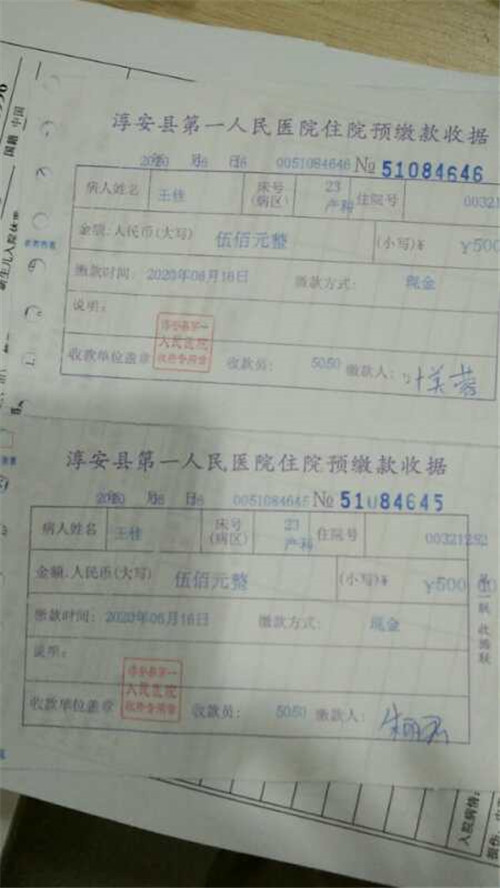 淳安县第一人民医院住院预缴款收据
0051084646 №51084646
病人姓名 王桂 床号(病区) 23 产科 住院号 003212
金额:人民币(大写) 伍佰元整 (小写)¥ ¥500
缴款时间: 2020年06月16日 缴款方式: 现金
说明:
淳安县第一人民医院收费专用章
收款单位盖章 收款员: 5050 缴款人: 叶美蓉
淳安县第一人民医院住院预缴款收据
0051084645 №51084645
病人姓名 王桂 床号(病区) 23 产科 住院号 00321252
金额:人民币(大写) 伍佰元整 (小写)¥ ¥500
缴款时间: 2020年06月16日 缴款方式: 现金
说明:
淳安县第一人民医院收费专用章
收款单位盖章 收款员: 5050 缴款人:
收据联
国籍 中国
入院病情: